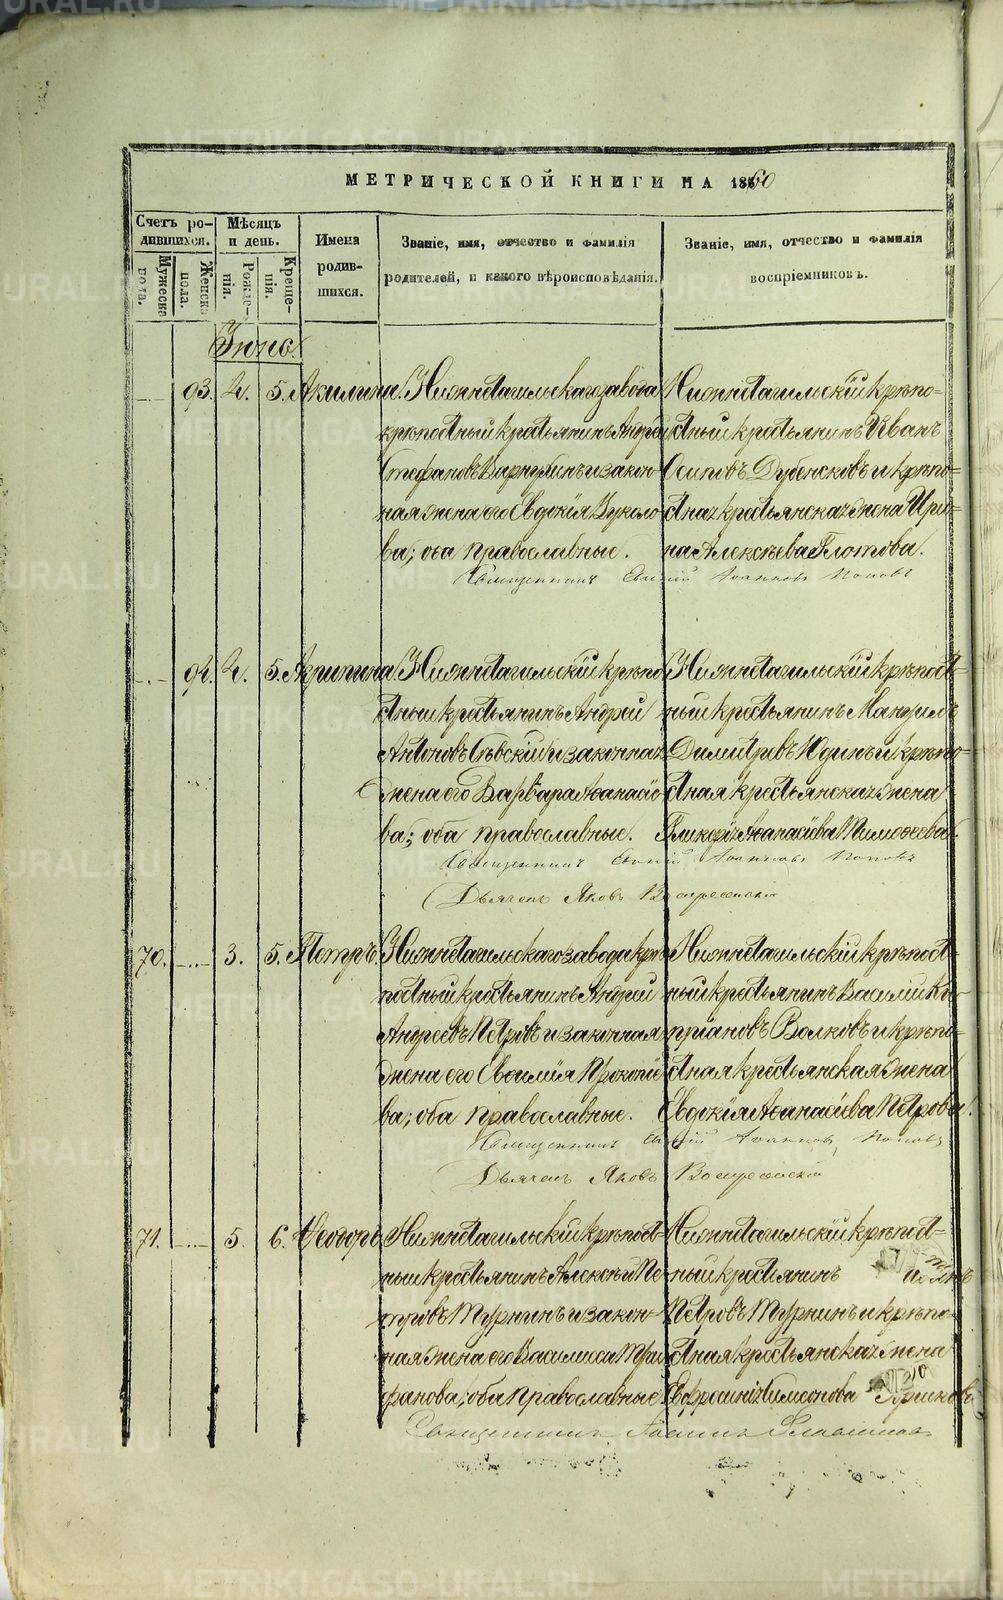 МЕТРИЧЕСКОЙ КНИГИ НА 1860
Счетъ родившихся.
Мѣсяцъ и день.
Имена родившихся.
Званіе, имя, отчество и фамилія родителей, и какого вѣроисповѣданія.
Званіе, имя, отчество и фамилія воспріемниковъ.
Мужеска пола.
Женска пола.
Рожденія.
Крещенія.
Іюнь.
93. 4. 5. Акилина.
Нижнетагильскаго завода
крѣпостный крестьянинъ Андрей
Стефановъ и закон-
ная жена его Евдокія Вуколо-
ва; оба православные.
Нижнетагильскій крѣпо-
стный крестьянинъ Иванъ
Осиповъ Дубенсковъ и крѣпо-
стная крестьянская жена Ири-
на Алексѣева Глотова.
Священникъ Іоанновъ Поповъ
94. 4. 5. Акрипина.
Нижнетагильскій крѣпо
стный крестьянинъ Андрей
Антоновъ Сѣвский и законная
жена его Варвара Аѳанасіе
ва; оба православные.
Нижнетагильскій крѣпост-
ный крестьянинъ Мануилъ
Димитріевъ Юдинъ и крѣпо-
стная крестьянская жена
Гликерія Аѳанасіева Тимоѳеева.
Священникъ Іоанновъ Поповъ
Дьяченъ Яковъ Воскресенскій
70. 3. 5. Петръ.
Нижнетагильскаго завода крѣ
постный крестьянинъ Андрей
Андреевъ Петровъ и законная
жена его Евѳимія Прокопіе
ва; оба православные.
Нижнетагильскій крѣпост-
ный крестьянинъ Василій Ки-
пріановъ Волковъ и крѣпо-
стная крестьянская жена
Евдокія Аѳанасіева Петрова.
Священникъ Іоанновъ Поповъ
Дьяченъ Яковъ Воскресенскій
71. 5. 6. Ѳеодоръ
Нижнетагильскій крѣпост-
ный крестьянинъ Алексѣй Пе-
тровъ Турнинъ и закон-
ная жена его Василисса Три
фанова; оба православные
Нижнетагильскій крѣпост-
ный крестьянинъ
Петровъ Турнинъ и крѣпо-
стная крестьянская жена
Евфросинія Симеонова
Священникъ Іоаннъ
METRIKI.GASO-URAL.RU